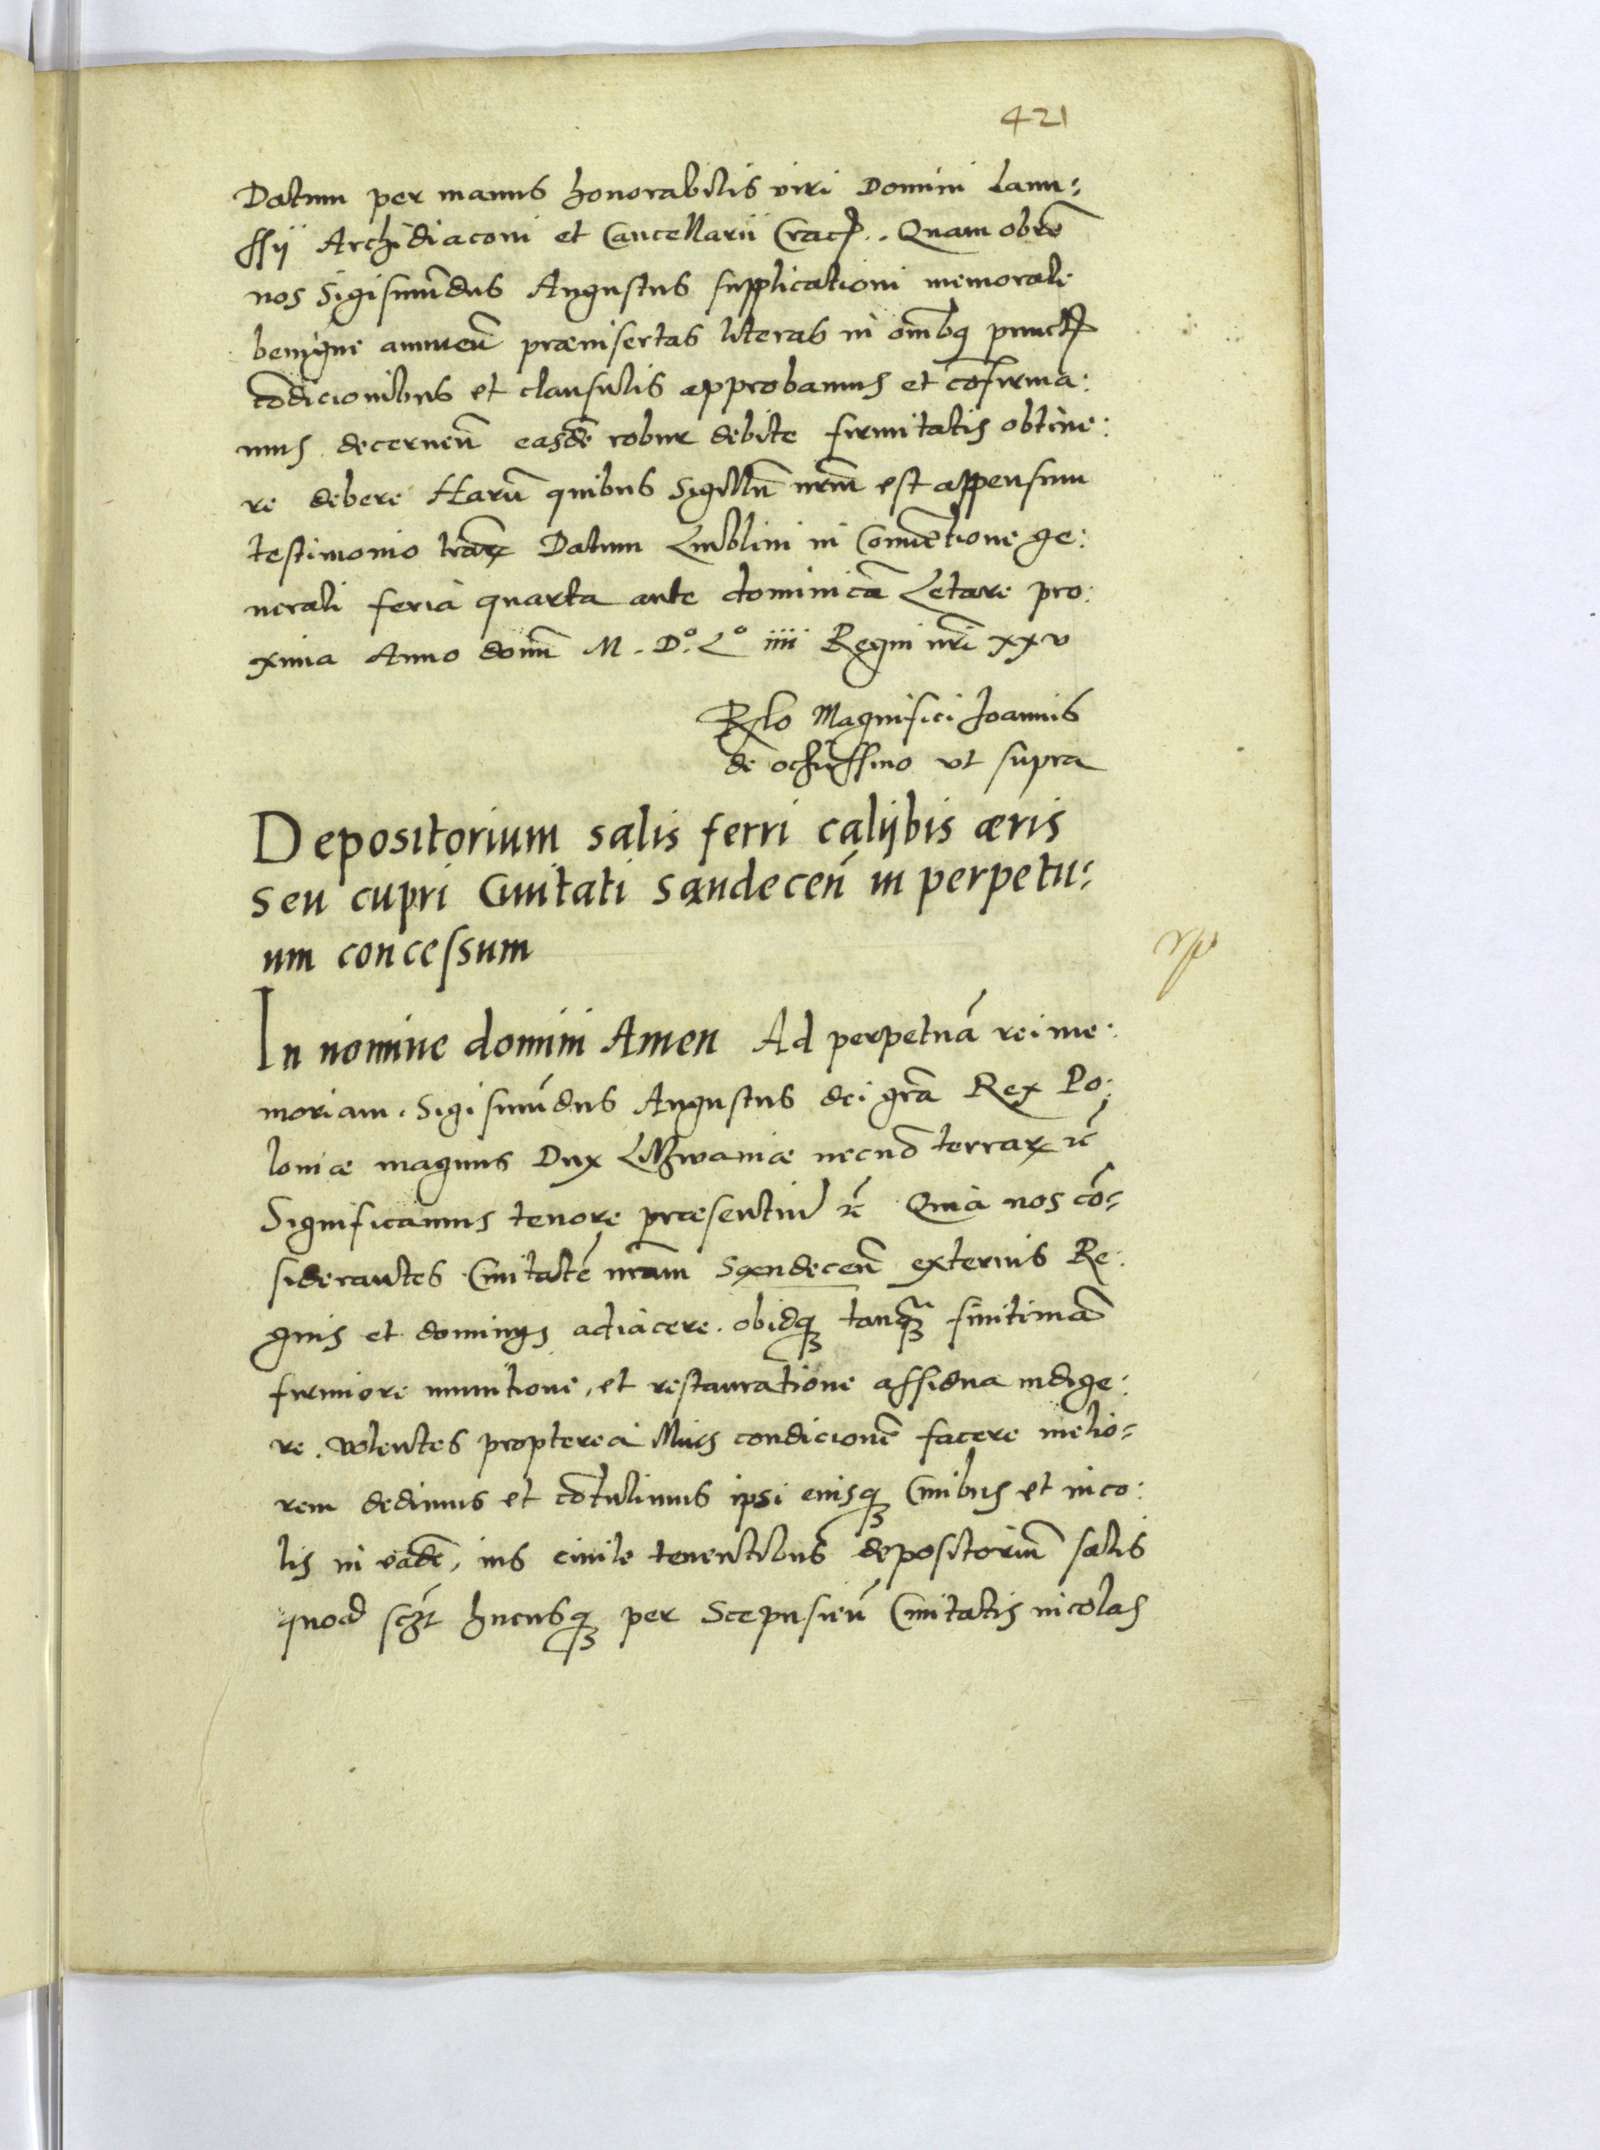 421
Datum per manus honorabilis viri Domini Ianu⸗
ssij Archidiaconi et Cancellarii Crac. Quam obrē
nos Sigismūdus Augustus supplicationi memorate
benigne annueñ præinsertas literas in om̄ibq punct
cōdicionibus et clausulis approbamus et cōfirma:
mus decerneñ easdē robur debite firmitatis obtine:
re debere Harū quibus Sigillū nr̄m est appensum
testimonio lr̄aꝝ Datum Lublini in Conuētione ge:
nerali feria quarta ante dominicā Letare pro:
xima Anno domī M. D.º Lº iiii Regni nr̄i xxv
Rlo Magnifici Ioannis
de ut supra
Depositorium salis ferri calijbis æris
seu cupri Ciuitati Sandeceń in perpetu⸗
um concessum
In nomine domini Amen Ad perpetuā rei me:
moriam. Sigismūdus Augustus dei gr̄a Rex Po:
loniæ magnus Dux Litwaniæ necnō terraꝝ ꝛc̄
Significamus tenore præsentiū ꝛc̄ Quia nos cō⸗
siderantes Ciuitatē nr̄am Sandeceñ externis Re:
gnis et dominijs adiacere. obidqꝫ tanqꝫ finitimā
firmiore munitione, et restauratione assidua indige:
re. volentes propterea illius condicionē facere melio⸗
rem dedimus et cōtulimus ipsi eiusqꝫ Ciuibus et inco:
lis in eadē, ius ciuile tenentibus depositoriū salis
quod hucusqꝫ per Scepusieñ Ciuitatis incolas